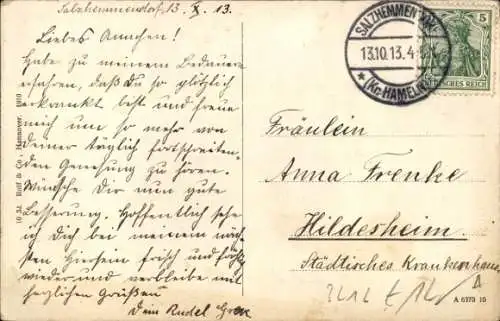 Salzhemmendorf, 13. X. 13.
Liebes Annchen!
Habe zu meinem Bedauern
erfahren, daß Du so plötzlich
erkrankt bist und freue
mich um so mehr von
Deiner täglich fortschreiten-
den Genesung zu hören.
Wünsche Dir nun gute
Besserung. Hoffentlich sehe
ich Dich bei meinem näch-
sten Hiersein frisch und froh
wieder und verbleibe mit
herzlichen Grüßen
Dein Rudel
SALZHEMMENDORF
13.10.13.4
* (Kr. HAMELN)
5
DEUTSCHES REICH
Fräulein
Anna Frenke
Hildesheim.
Städtisches Krankenhaus
A 6379 10
Hannover. 1910